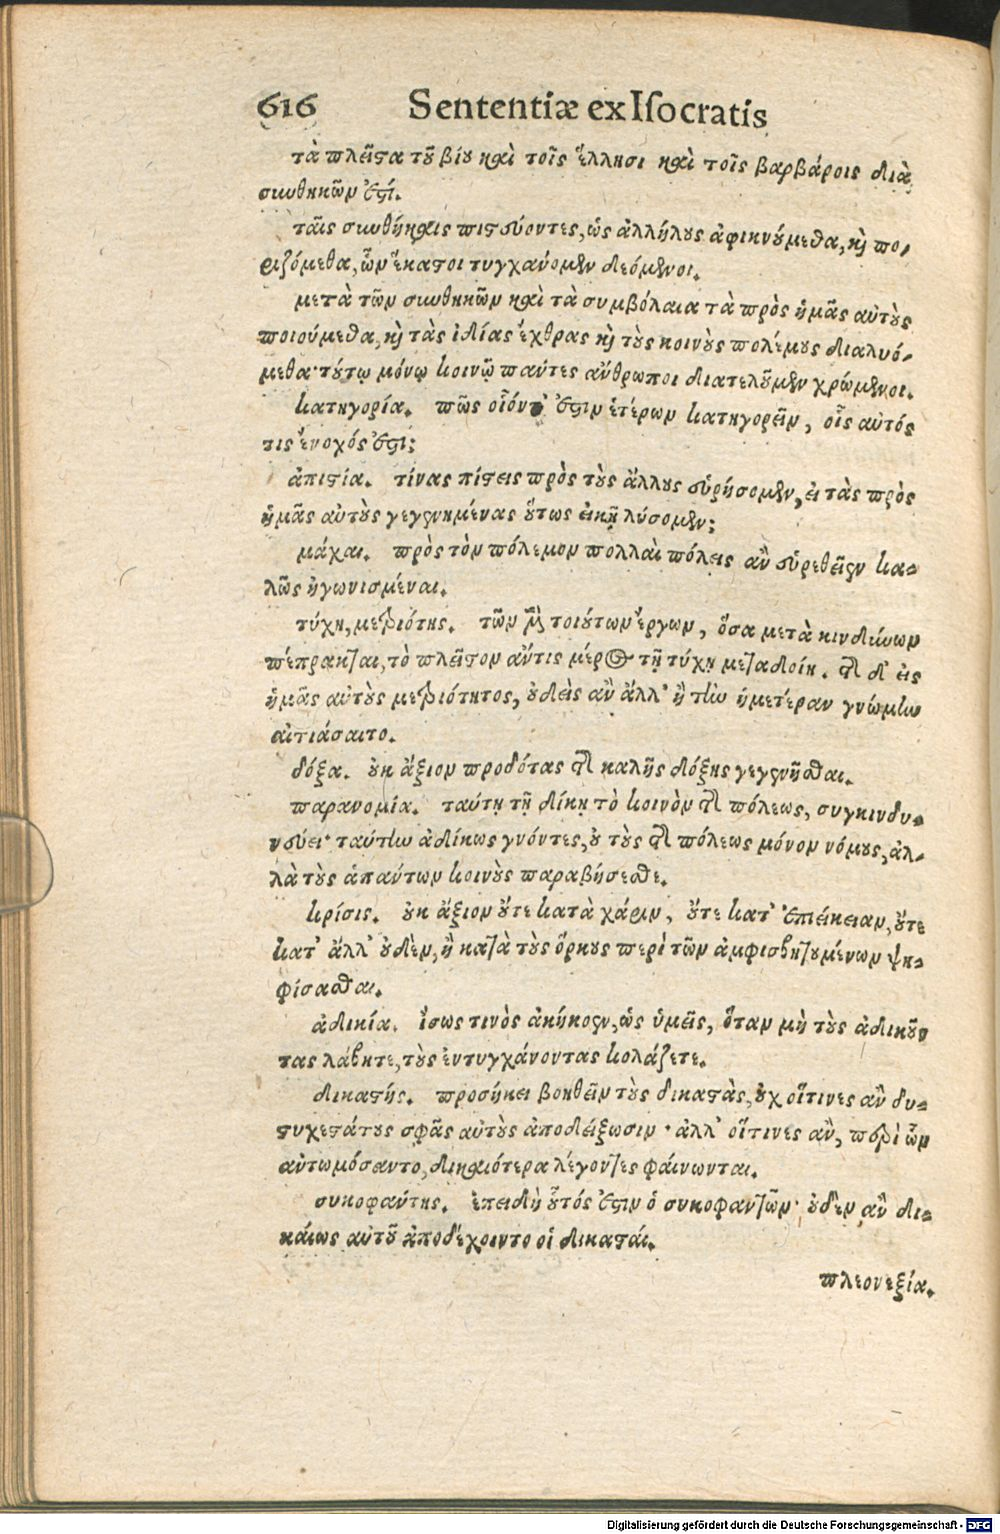 616 Sententiæ ex Isocratis
τὰ πλεῖστα τοῦ βίου καὶ τοῖς ἕλλησι καὶ τοῖς βαρβάροις διὰ
συνθηκῶν ἐστί.
ταῖς συνθήκαις πιστεύοντες, ὡς ἀλλήλους ἀφικνούμεθα, καὶ πο-
ριζόμεθα, ὧν ἕκαστοι τυγχάνομεν δεόμενοι.
μετὰ τῶν συνθηκῶν καὶ τὰ συμβόλαια τὰ πρὸς ἡμᾶς αὐτοὺς
ποιούμεθα, καὶ τὰς ἰδίας ἔχθρας καὶ τοὺς κοινοὺς πολέμους διαλυό-
μεθα· τούτῳ μόνῳ κοινῷ πάντες ἄνθρωποι διατελοῦμεν χρώμενοι.
κατηγορία. πῶς οἷόντ' ἐστιν ἑτέρων κατηγορεῖν, οἷς αὐτός
τις ἔνοχός ἐστι;
ἀπιστία. τίνας πίστεις πρὸς τοὺς ἄλλους εὑρήσομεν, εἰ τὰς πρὸς
ἡμᾶς αὐτοὺς γεγενημένας οὕτως εἰκῇ λύσομεν;
μάχαι. πρὸς τὸν πόλεμον πολλαὶ πόλεις ἂν εὑρεθεῖεν κα-
λῶς ἠγωνισμέναι.
τύχη, μετριότης. τῶν μὲν τοιούτων ἔργων, ὅσα μετὰ κινδύνων
πέπρακται, τὸ πλεῖστον ἄν τις μέρος τῇ τύχῃ μεταδοίη. τῆς δ' εἰς
ἡμᾶς αὐτοὺς μετριότητος, οὐδεὶς ἂν ἄλλ' ἢ τὴν ἡμετέραν γνώμην
αἰτιάσαιτο.
δόξα. οὐκ ἄξιον προδότας τῆς καλῆς δόξης γεγενῆσθαι.
παρανομία. ταύτῃ τῇ δίκῃ τὸ κοινὸν τῆς πόλεως, συγκινδυ-
νεύει· ταύτην ἀδίκως γνόντες, οὐ τοὺς τῆς πόλεως μόνον νόμους, ἀλ-
λὰ τοὺς ἁπάντων κοινοὺς παραβήσεσθε.
κρίσις. οὐκ ἄξιον οὔτε κατὰ χάριν, οὔτε κατ' ἐπιείκειαν, οὔτε
κατ' ἄλλ' οὐδὲν, ἢ κατὰ τοὺς ὅρκους περὶ τῶν ἀμφισβητουμένων ψη-
φίσασθαι.
ἀδικία. ἴσως τινὸς ἀκήκοεν, ὡς ὑμεῖς, ὅταν μὴ τοὺς ἀδικοῦν
τας λάβητε, τοὺς ἐντυγχάνοντας κολάζετε.
δικαστής. προσήκει βοηθεῖν τοὺς δικαστὰς, οὐχ οἵτινες ἂν δυ-
στυχεστάτους σφᾶς αὐτοὺς ἀποδείξωσιν· ἀλλ' οἵτινες ἂν, περὶ ὧν
ἀντωμόσαντο, δικαιότερα λέγοντες φαίνωνται.
συκοφάντης. ἐπειδὴ οὗτός ἐστιν ὁ συκοφαντῶν· οὐδὲν ἂν δι-
καίως αὐτοῦ ἀποδέχοιντο οἱ δικασταί.
πλεονεξία.
Digitalisierung gefördert durch die Deutsche Forschungsgemeinschaft - DFG